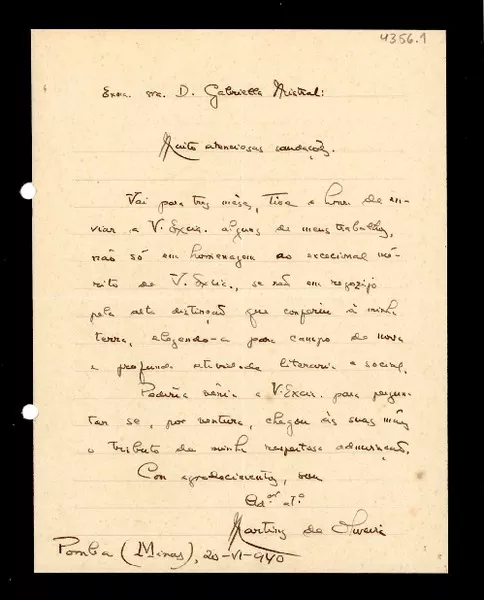 4356.1
Exma. sra. D. Gabriella Mistral:
Muito atenciosas saudações.
Vai para tres mêses, tive a honra de en-
viar a V. Excia. alguns de meus trabalhos,
não só em homenagem ao excecional mé-
rito de V. Excia., se não em regozijo
pela alta distinção que conferiu á minha
terra, elegendo-a para campo de nova
e profunda atividade literaria e social.
Pediria vênia a V. Excia. para pergun-
tar se, por ventura, chegou às suas mãos
o tributo da minha respeitosa admiração.
Con agradecimentos, sou
Ad.or at.o
Martins de Oliveira
Pomba (Minas), 20-VI-940